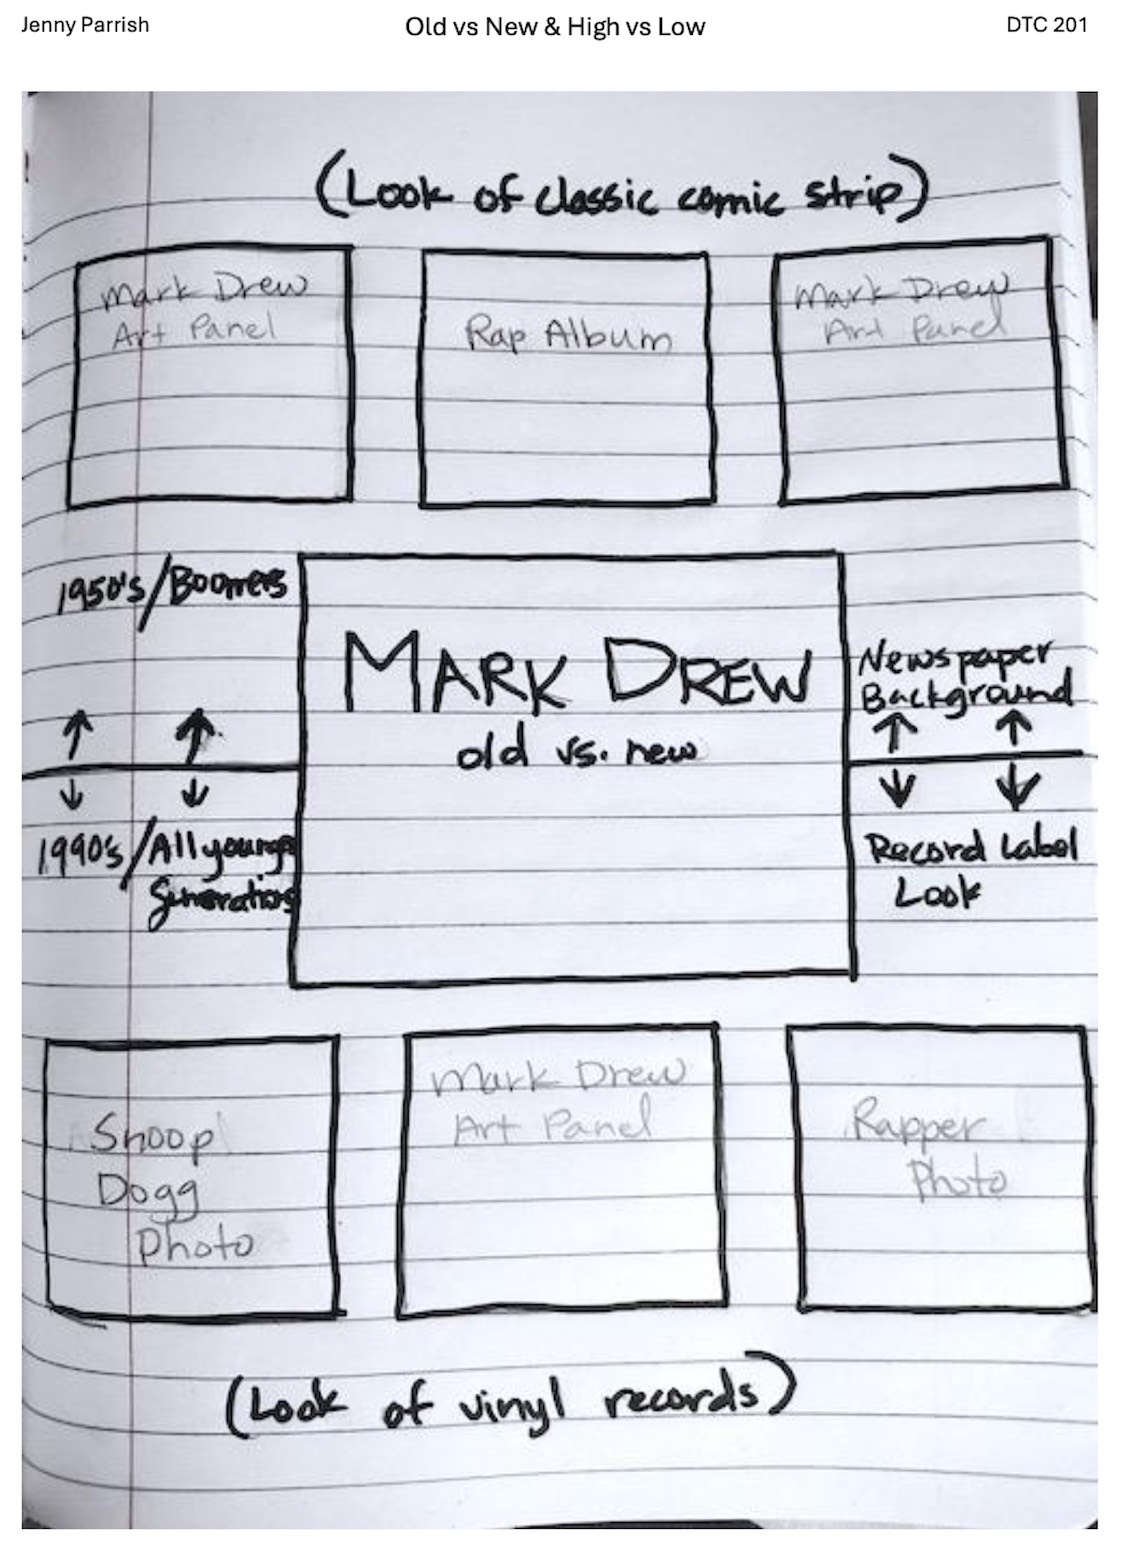 Jenny Parrish
Old vs New & High vs Low
DTC 201
(Look of classic comic strip)
Mark Drew
Art Panel
Rap Album
Mark Drew
Art Panel
1950's/Boomers
MARK DREW
old vs. new
Newspaper
Background
1990's/All young
Generations
Record Label
Look
Snoop
Dogg
Photo
Mark Drew
Art Panel
Rapper
Photo
(Look of vinyl records)